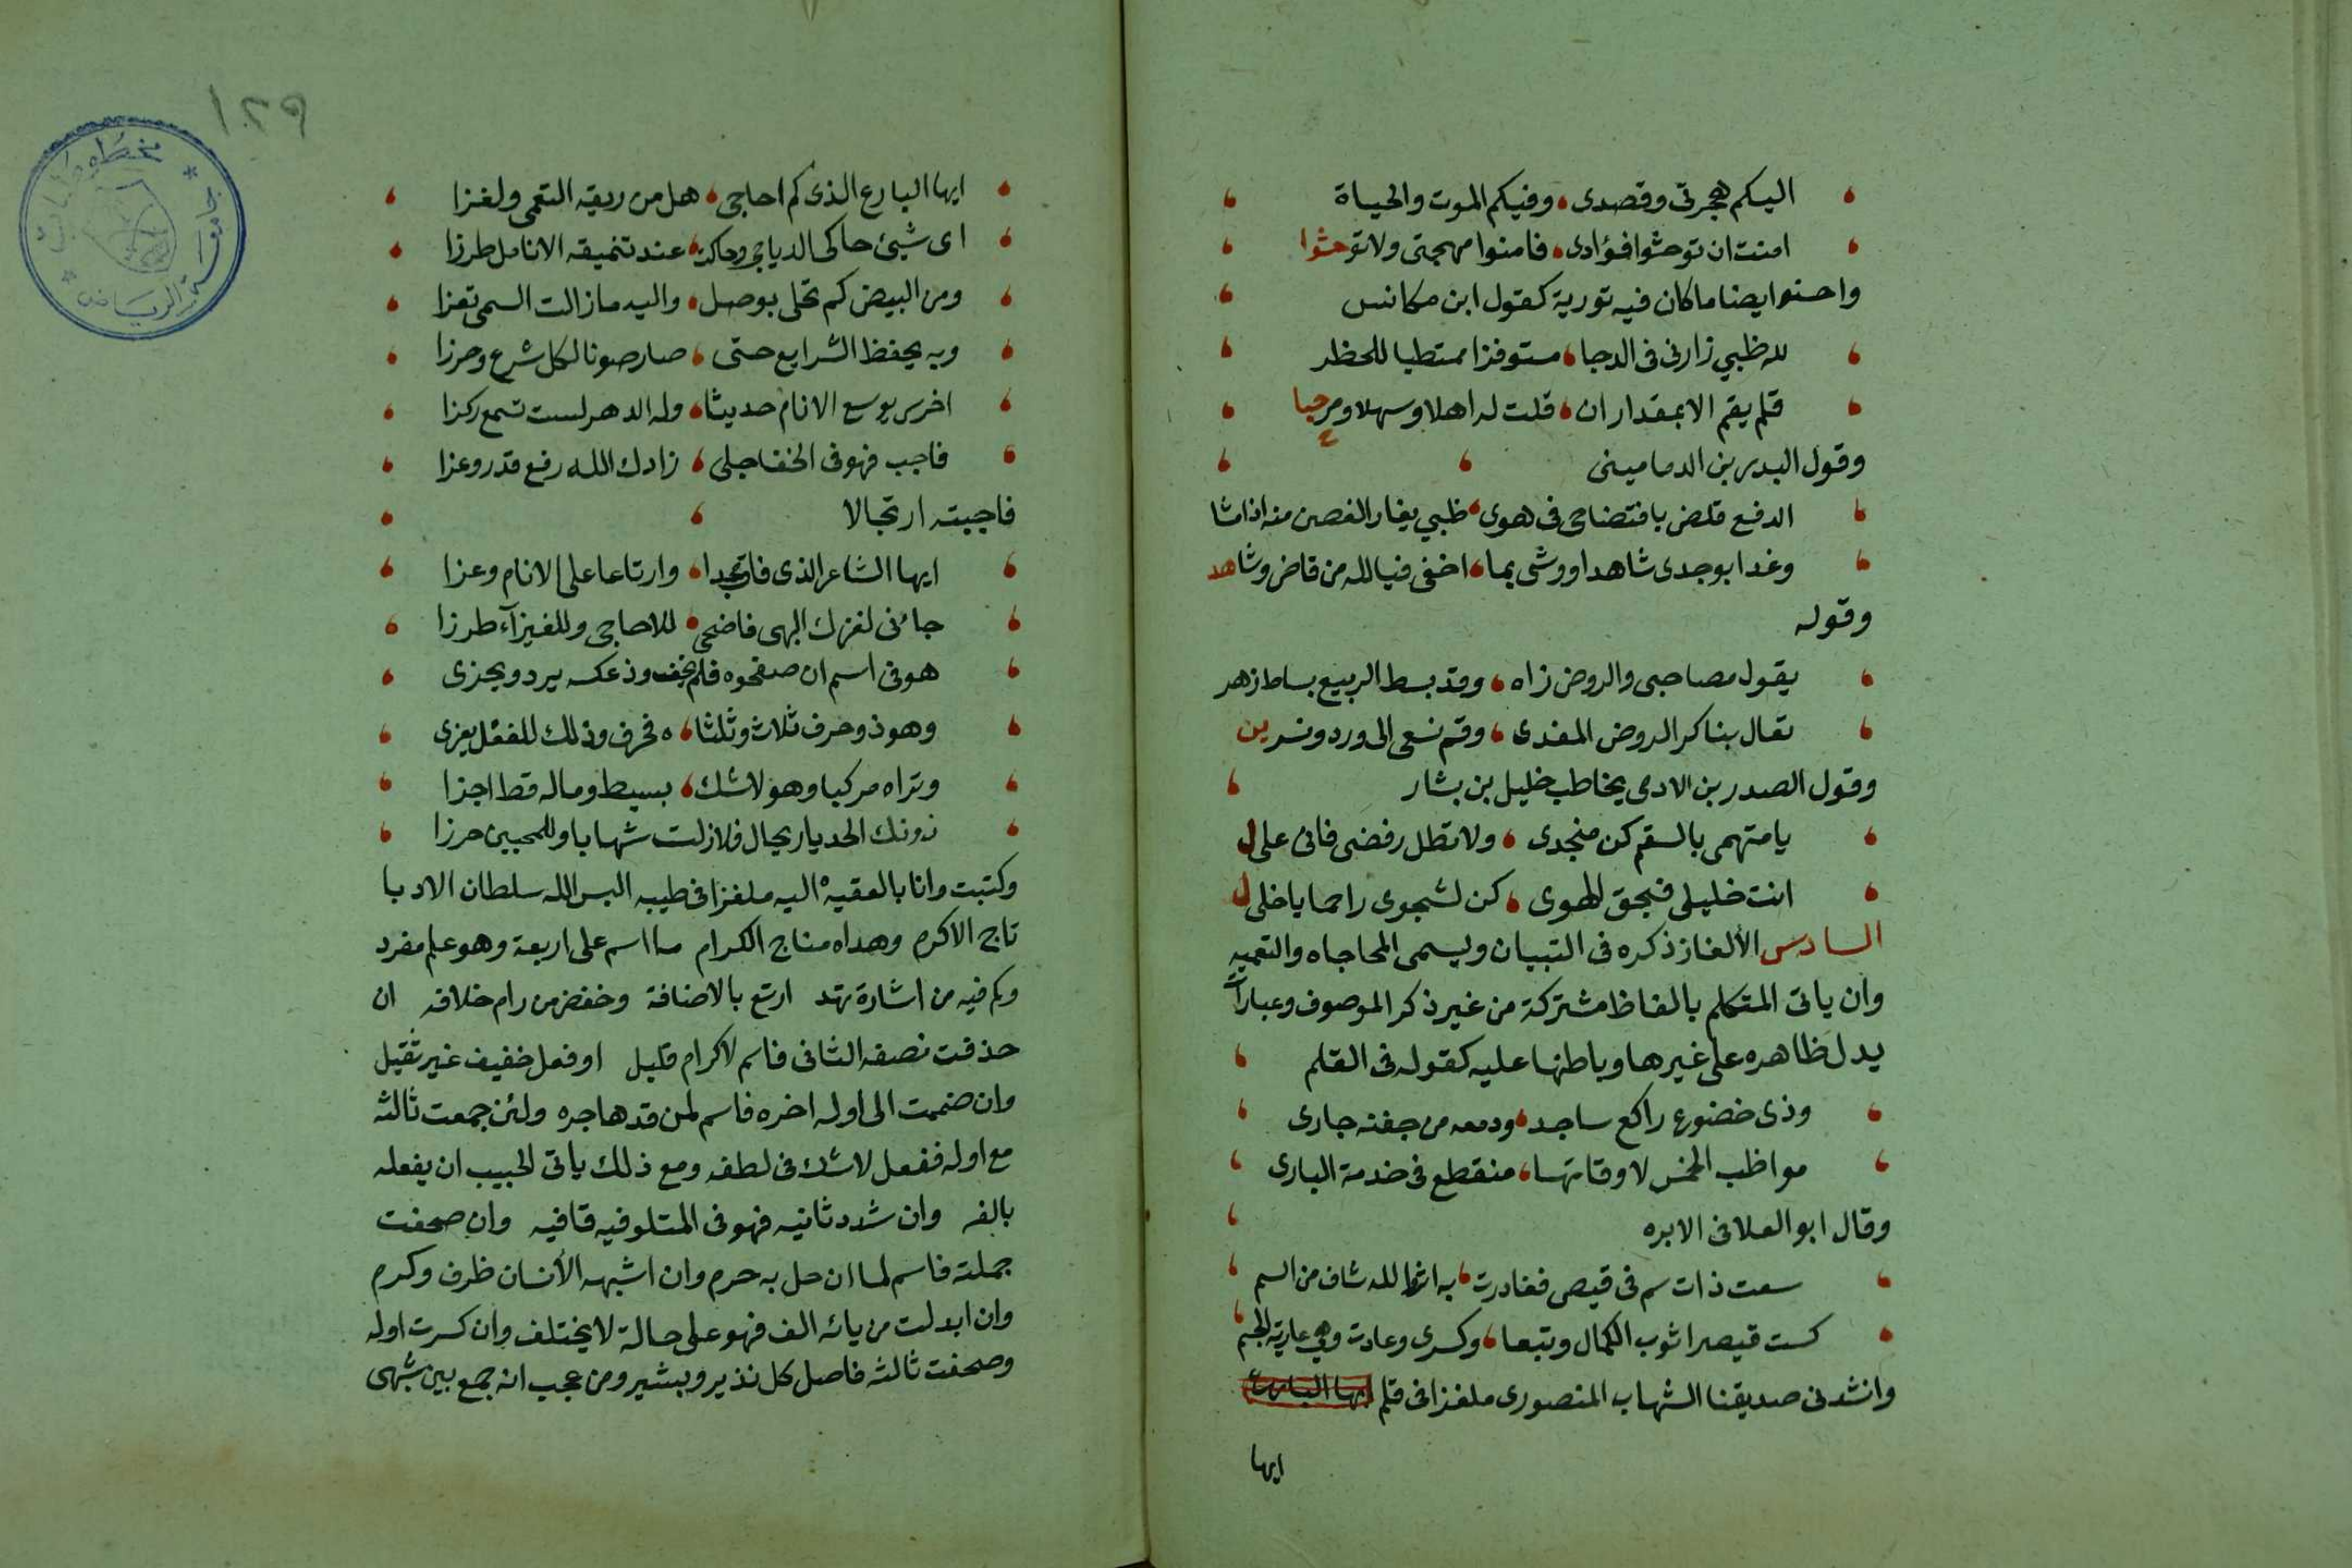 اليكم هجرتى وقصدى، وفيكم الموت والحياة
امنت ان توحشوا فؤادى، فامنوا مهجتى ولا توحشوا
واحسنوا ايضا ما كان فيه تورية كقول ابن مكانس
لله ظبي زارنى فى الدجا، مستوفزا ممتطيا للحظر
فلم يقم الا بمقدار ان، قلت له اهلا وسهلا ومرحبا
وقول البدر بن الدمامينى
الدمع قاض بافتضاحى فى هوى، ظبي يغار الغصن منه اذا مشا
وغدا بوجدى شاهدا ووشى بما، اخفى فيا لله من قاض وشاهد
وقوله
يقول مصاحبى والروض زاه، وقد بسط الربيع بساط زهر
تعال بنا كر الروض المفدى، وقم نسعى الى ورد ونسرين
وقول الصدر بن الادمى يخاطب خليل بن بشار
يا متهمى بالسقم كن منجدى، ولا تطل رفضى فانى على ل
انت خليلى فبحق الهوى، كن لشجوى راحما يا خلى ل
السادس الألغاز ذكره فى التبيان ويسمى المحاجاه والتعميه
وان ياتى المتكلم بالفاظ مشتركة من غير ذكر الموصوف وعبارات
يدل ظاهره على غيرها وباطنها عليه كقوله فى القلم
وذى خضوع راكع ساجد، ودمعه من جفنه جارى
مواظب الخمس لاوقاتها، منقطع فى خدمة البارى
وقال ابو العلا فى الابره
سعت ذات سم فى قيص فغادرت، به اثرا لله شاف من السم
كست قيصرا ثوب الكمال وتبعا، وكسرى وعادت وهى عارية الجسم
وانشدنى صديقنا الشهاب المنصورى ملغزا فى قلم ايها البارع
ايها
١٢٩
ايها البارع الذى كم احاجى، هل من ريقه التعمى ولغزا
اى شيئ حاكى الدياجى وحاكت، عند تنميقه الانامل طرزا
ومن البيض كم تحلى بوصل، واليه ما زالت السمر تعزا
وبه يحفظ الشرايع حتى، صار صونا لكل شرع وحرزا
اخرس يوسع الانام حديثا، وله الدهر لست تسمع ركزا
فاجب فهو فى الخفا جلى، زادك الله رفع قدر وعزا
فاجبته ارتجالا
ايها الشاعر الذى فاق مجدا، وارتاعا على الانام وعزا
جائنى لغزك البهى فاضحى، للاحاجى وللغيزآء طرزا
هو فى اسم ان صفحوه فلم يخف وذ عكسه يرد ويجزى
وهو ذو حرف ثلاث وثلثا، ه فحرف وذلك للفعل يعزى
وتراه مركبا وهو لا شك، بسيط وماله قط اجزا
دونك الحد يا رجال فلا زلت شهابا وللمحبين حرزا
وكتبت وانا بالعقيه اليه ملغزا فى طيبه البس الله سلطان الادبا
تاج الاكرم وهداه مناج الكرام ما اسم على اربعة وهو علم مفرد
وكم فيه من اشارة تهد ارتع بالاضافة وخفض من رام خلافه ان
حذفت نصفه الثانى فاسم لاكرام قليل او فعل خفيف غير ثقيل
وان ضممت الى اوله اخره فاسم لمن قد هاجره ولئن جمعت ثالثه
مع اوله ففعل لا شك فى لطفه ومع ذلك ياتى لحبيب ان يفعله
بالفه وان شدد ثانيه فهو فى المتلو فيه قافيه وان صحفت
جملته فاسم لما ان حل به حرم وان اشبهه الأنسان ظرف وكرم
وان ابدلت من يائه الف فهو على حالة لا يختلف وان كسرت اوله
وصحفت ثالثه فاصل كل نذير وبشير ومن عجب انه جمع بين شبهى